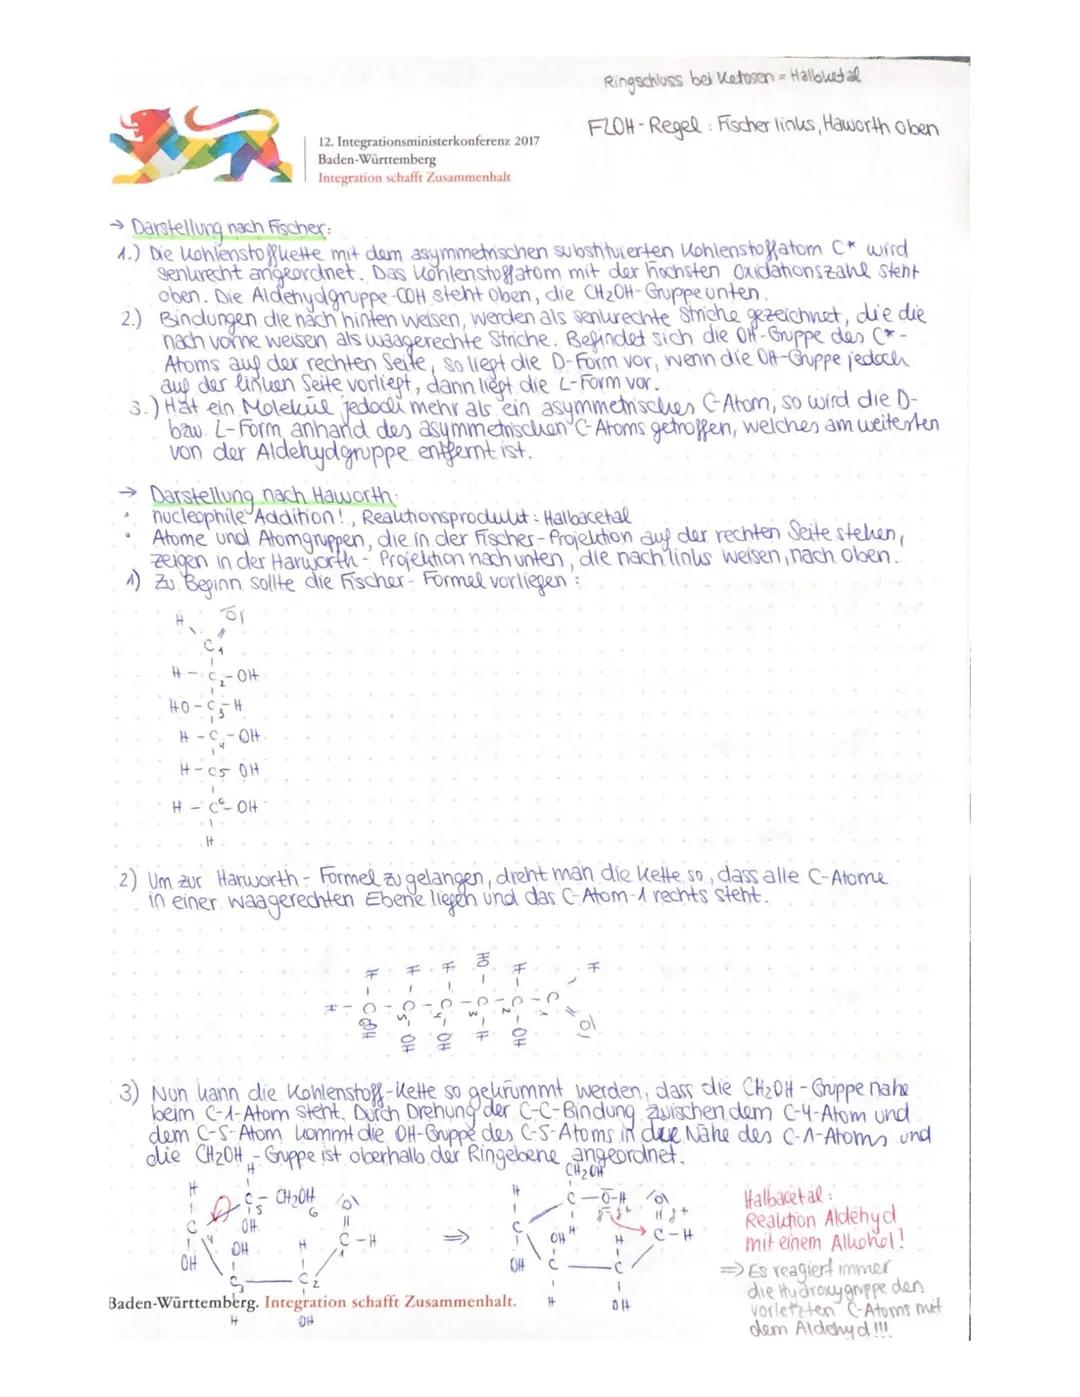 Ringschluss bei Ketosen = Halbketal
FLOH-Regel: Fischer links, Haworth Oben
12. Integrationsministerkonferenz 2017
Baden-Württemberg
Integration schafft Zusammenhalt
→ Darstellung nach Fischer:
1.) Die Kohlenstoffkette mit dem asymmetrischen substituierten Kohlenstoffatom C* wird
senkrecht angeordnet. Das Kohlenstoffatom mit der höchsten Oxidationszahl steht
oben. Die Aldehydgruppe -COH steht oben, die CH2OH-Gruppe unten.
2.) Bindungen die nach hinten weisen, werden als senkrechte Striche gezeichnet, die die
nach vorne weisen als waagerechte Striche. Befindet sich die OH-Gruppe des C*-
Atoms auf der rechten Seite, so liegt die D-Form vor, wenn die OH-Gruppe jedoch
auf der linken Seite vorliegt, dann liegt die L-Form vor.
3.) Hat ein Molekül jedoch mehr als ein asymmetrisches C-Atom, so wird die D-
bzw. L-Form anhand des asymmetrischen C-Atoms getroffen, welches am weitesten
von der Aldehydgruppe entfernt ist.
→ Darstellung nach Haworth:
• nucleophile Addition!, Reaktionsprodukt: Halbacetal
• Atome und Atomgruppen, die in der Fischer-Projektion auf der rechten Seite stehen,
zeigen in der Harworth-Projektion nach unten, die nach links weisen, nach oben.
1) Zu Beginn sollte die Fischer-Formel vorliegen:
H O
C1
H-C2-OH
HO-C3-H
H-C4-OH
H-C5 OH
H-C6-OH
H
2) Um zur Harworth-Formel zu gelangen, dreht man die Kette so, dass alle C-Atome
in einer waagerechten Ebene liegen und das C-Atom-1 rechts steht.
H H H HO H H
H-C-C5-C4-C3-C2-C1
OH OH OH H OH O
3) Nun kann die Kohlenstoff-Kette so gekrümmt werden, dass die CH2OH-Gruppe nahe
beim C-1-Atom steht. Durch Drehung der C-C-Bindung zwischen dem C-4-Atom und
dem C-5-Atom kommt die OH-Gruppe des C-5-Atoms in die Nähe des C-1-Atoms und
die CH2OH-Gruppe ist oberhalb der Ringebene angeordnet.
H CH2OH
H C5-CH2OH 6 O H C-O-H O
C 4 OH C 1-H ⇒ C OH H H C-H
OH OH H OH C C
C3 C2 H OH
H OH
Halbacetal:
Reaktion Aldehyd
mit einem Alkohol!
⇒ Es reagiert immer
die Hydroxygruppe des
vorletzten C-Atoms mit
dem Aldehyd!!!
Baden-Württemberg. Integration schafft Zusammenhalt.